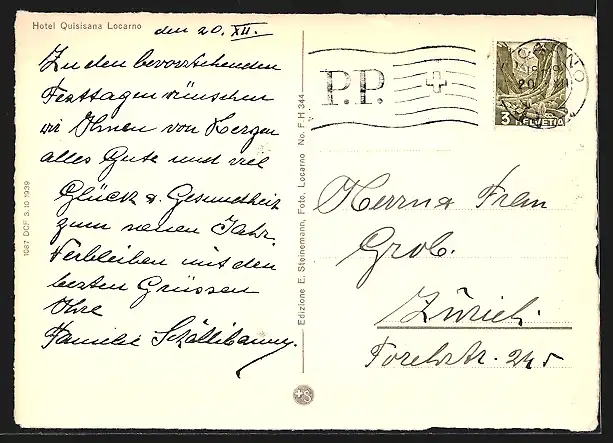 Hotel Quisisana Locarno
den 20. XII.
Zu den bevorstehenden
Festtagen wünschen
wir Ihnen von Herzen
alles Gute und viel
Glück & Gesundheit
zum neuen Jahr.
Verbleiben mit den
besten Grüssen
Ihre
Familie
1087 DCF 3.10.1939
Edizione E. Steinemann, Foto, Locarno No. F. H 344
P.P.
3
HELVETIA
Herrn & Frau
Grob.
Zürich.
Forchstr. 245